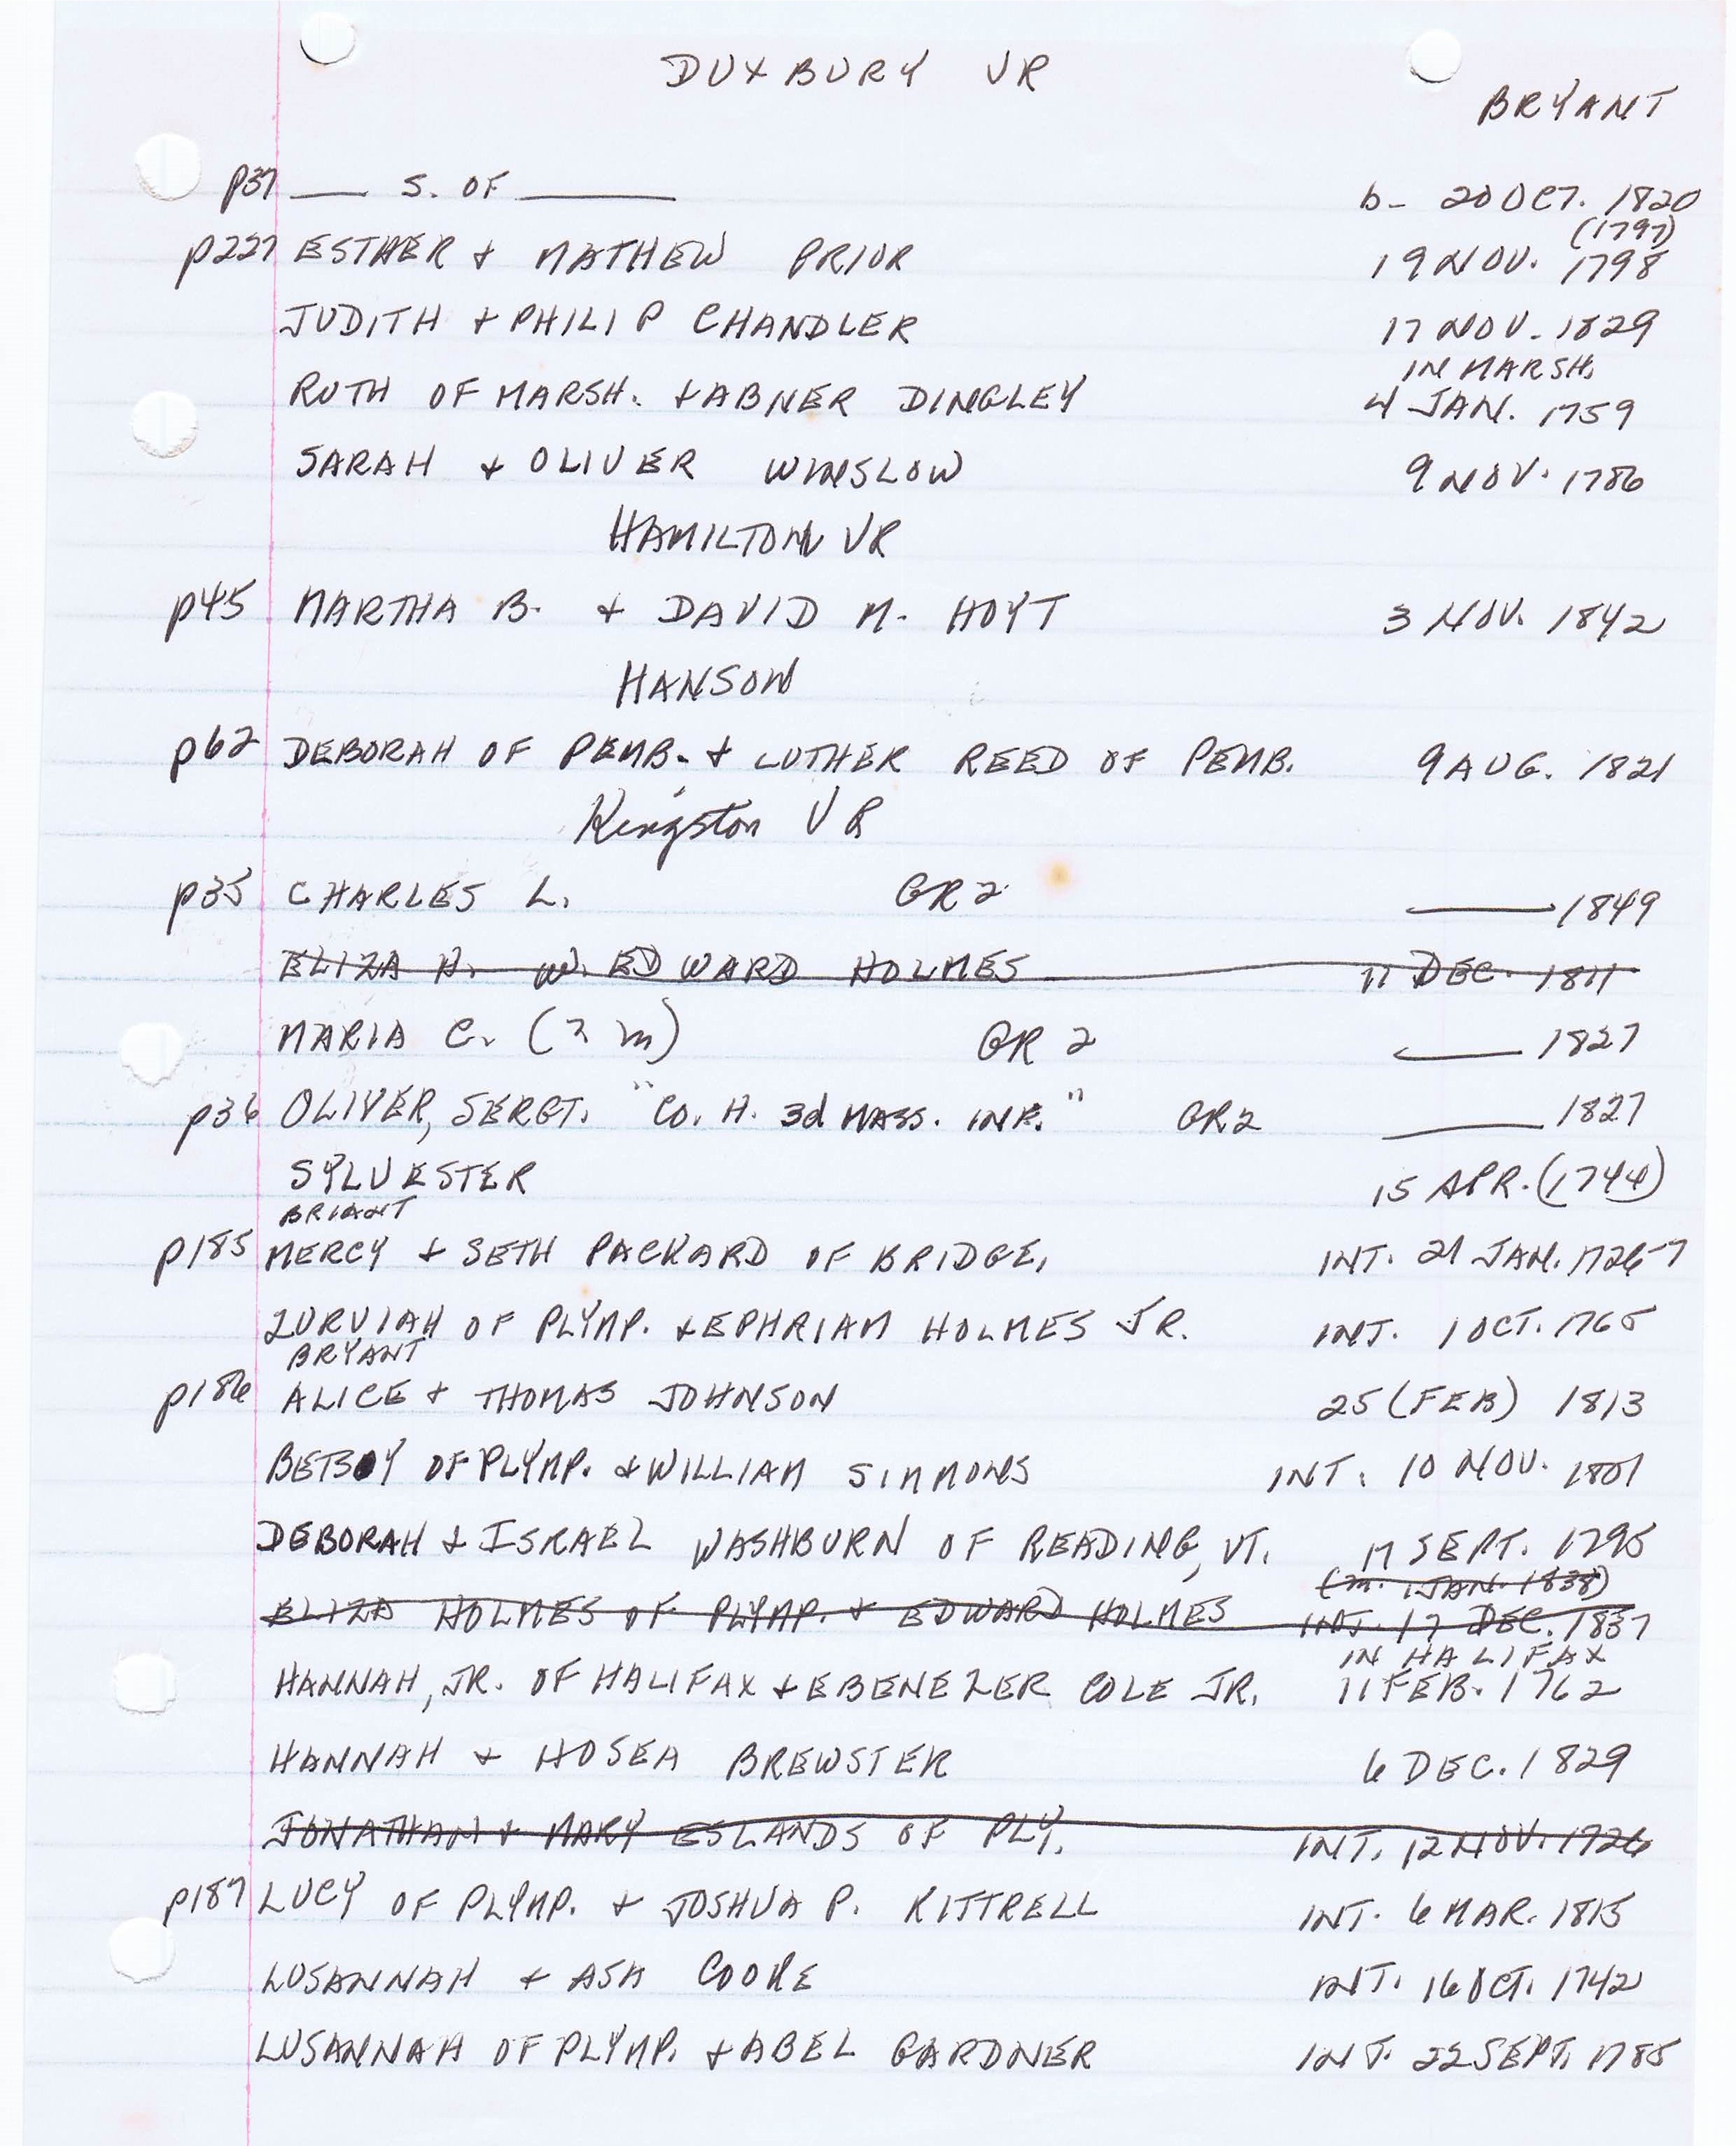 DUXBURY VR
BRYANT
p37 ___ S. OF ______ b- 20 OCT. 1820
(1797)
p227 ESTHER + MATHEW PRIOR 19 NOV. 1798
JUDITH + PHILIP CHANDLER 17 NOV. 1829
IN MARSH.
RUTH OF MARSH. + ABNER DINGLEY 4 JAN. 1759
SARAH + OLIVER WINSLOW 9 NOV. 1786
HAMILTON VR
p45 MARTHA B. + DAVID M. HOYT 3 NOV. 1842
HANSON
p62 DEBORAH OF PEMB. + LUTHER REED OF PEMB. 9 AUG. 1821
Kingston VR
p35 CHARLES L. GR 2 ___ 1849
ELIZA H. W. EDWARD HOLMES 11 DEC. 1811
MARIA C. (2 m) GR 2 ___ 1827
p36 OLIVER, SERGT. "CO. H. 3d MASS. INF." GR2 ___ 1827
SYLVESTER 15 APR. (1744)
BRIANT
p185 MERCY + SETH PACKARD OF BRIDGE. INT. 21 JAN. 1726-7
ZURVIAH OF PLYMP. + EPHRIAM HOLMES JR. INT. 1 OCT. 1765
BRYANT
p186 ALICE + THOMAS JOHNSON 25 (FEB) 1813
BETSY OF PLYMP. + WILLIAM SIMMONS INT. 10 NOV. 1801
DEBORAH + ISRAEL WASHBURN OF READING, VT. 17 SEPT. 1795
(m. 1 JAN. 1838)
ELIZA HOLMES OF PLYMP. + EDWARD HOLMES INT. 17 DEC. 1837
IN HALIFAX
HANNAH, JR. OF HALIFAX + EBENEZER COLE JR. 11 FEB. 1762
HANNAH + HOSEA BREWSTER 6 DEC. 1829
JONATHAN + MARY ESLANDS OF PLY. INT. 12 NOV. 1726
p187 LUCY OF PLYMP. + JOSHUA P. KITTRELL INT. 6 MAR. 1815
LUSANNAH + ASA COOKE INT. 16 OCT. 1742
LUSANNAH OF PLYMP. + ABEL GARDNER INT. 22 SEPT. 1785